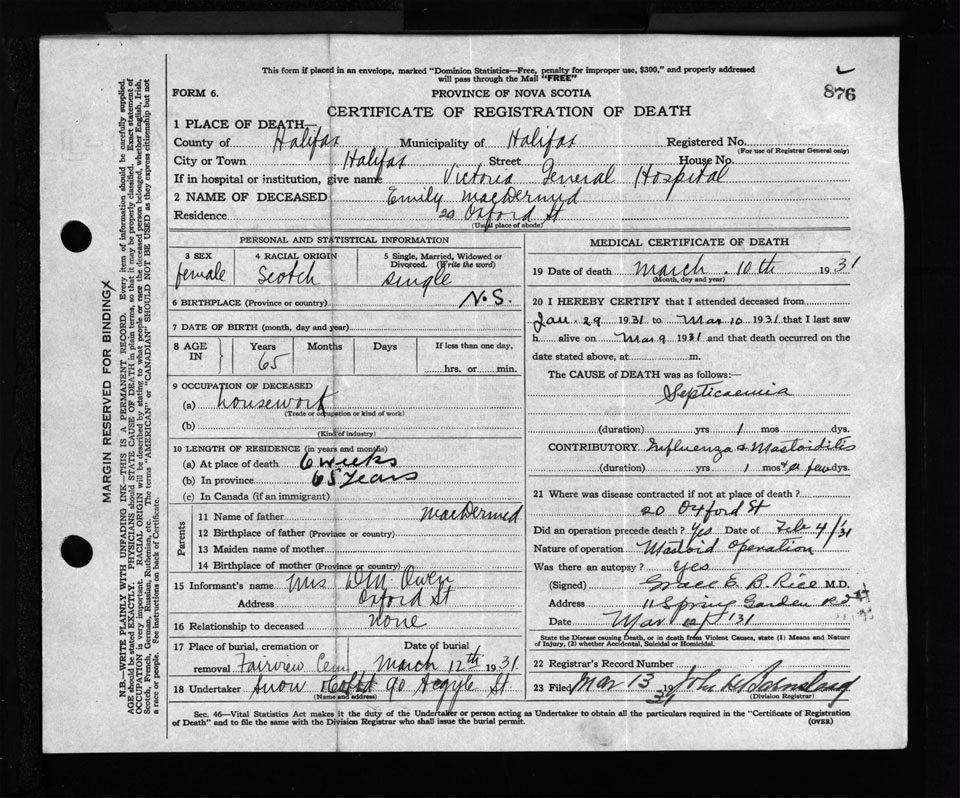 This form if placed in an envelope, marked "Dominion Statistics—Free, penalty for improper use, $300," and properly addressed
will pass through the Mail "FREE"
876
FORM 6. PROVINCE OF NOVA SCOTIA
CERTIFICATE OF REGISTRATION OF DEATH
1 PLACE OF DEATH—
County of Halifax Municipality of Halifax Registered No.
(For use of Registrar General only)
City or Town Halifax Street House No.
If in hospital or institution, give name Victoria General Hospital
2 NAME OF DECEASED Emily MacDermid
Residence 20 Oxford St
(Usual place of abode)
PERSONAL AND STATISTICAL INFORMATION
3 SEX 4 RACIAL ORIGIN 5 Single, Married, Widowed or
Divorced. (Write the word)
female Scotch single
6 BIRTHPLACE (Province or country) N.S.
7 DATE OF BIRTH (month, day and year)
8 AGE IN Years Months Days If less than one day,
65 hrs. or min.
9 OCCUPATION OF DECEASED
(a) housework
(Trade or occupation or kind of work)
(b)
(Kind of industry)
10 LENGTH OF RESIDENCE (in years and months)
(a) At place of death 6 weeks
(b) In province 65 Years
(c) In Canada (if an immigrant)
Parents
11 Name of father MacDermid
12 Birthplace of father (Province or country)
13 Maiden name of mother
14 Birthplace of mother (Province or country)
15 Informant's name Mrs D M Owen
Address Oxford St
16 Relationship to deceased none
17 Place of burial, cremation or Date of burial
removal Fairview Cem March 12th 1931
18 Undertaker Snow 90 Argyle St
(Name and address)
MEDICAL CERTIFICATE OF DEATH
19 Date of death March 10th 1931
(Month, day and year)
20 I HEREBY CERTIFY that I attended deceased from
Jan. 29 1931 to Mar 10 1931 that I last saw
h alive on Mar 9 1931 and that death occurred on the
date stated above, at m.
The CAUSE OF DEATH was as follows:—
Septicaemia
(duration) yrs 1 mos dys.
CONTRIBUTORY Influenza & Mastoiditis
(duration) yrs 1 mos & a few dys.
21 Where was disease contracted if not at place of death?
20 Oxford St
Did an operation precede death? Yes Date of Feb 4/31
Nature of operation Mastoid Operation
Was there an autopsy? Yes
(Signed) Grace E. B. Rice M.D.
Address 11 Spring Garden Rd
Date Mar 31
State the Disease causing Death, or in death from Violent Causes, state (1) Means and Nature
of Injury, (2) whether Accidental, Suicidal or Homicidal.
22 Registrar's Record Number
23 Filed Mar 13 1931 John
(Division Registrar)
Sec. 46—Vital Statistics Act makes it the duty of the Undertaker or person acting as Undertaker to obtain all the particulars required in the "Certificate of Registration
of Death" and to file the same with the Division Registrar who shall issue the burial permit. (OVER)
MARGIN RESERVED FOR BINDING
N.B.—WRITE PLAINLY WITH UNFADING INK—THIS IS A PERMANENT RECORD. Every item of information should be carefully supplied.
AGE should be stated EXACTLY. PHYSICIANS should STATE CAUSE OF DEATH in plain terms, so that it may be properly classified. Exact statement of
OCCUPATION is very important. RACIAL ORIGIN will be described by stating to what people or race the deceased person belonged, whether English, Irish,
Scotch, French, German, Russian, Ruthenian, etc. The terms "AMERICAN" or "CANADIAN" SHOULD NOT BE USED as they express citizenship but not
a race or people. See instructions on back of Certificate.